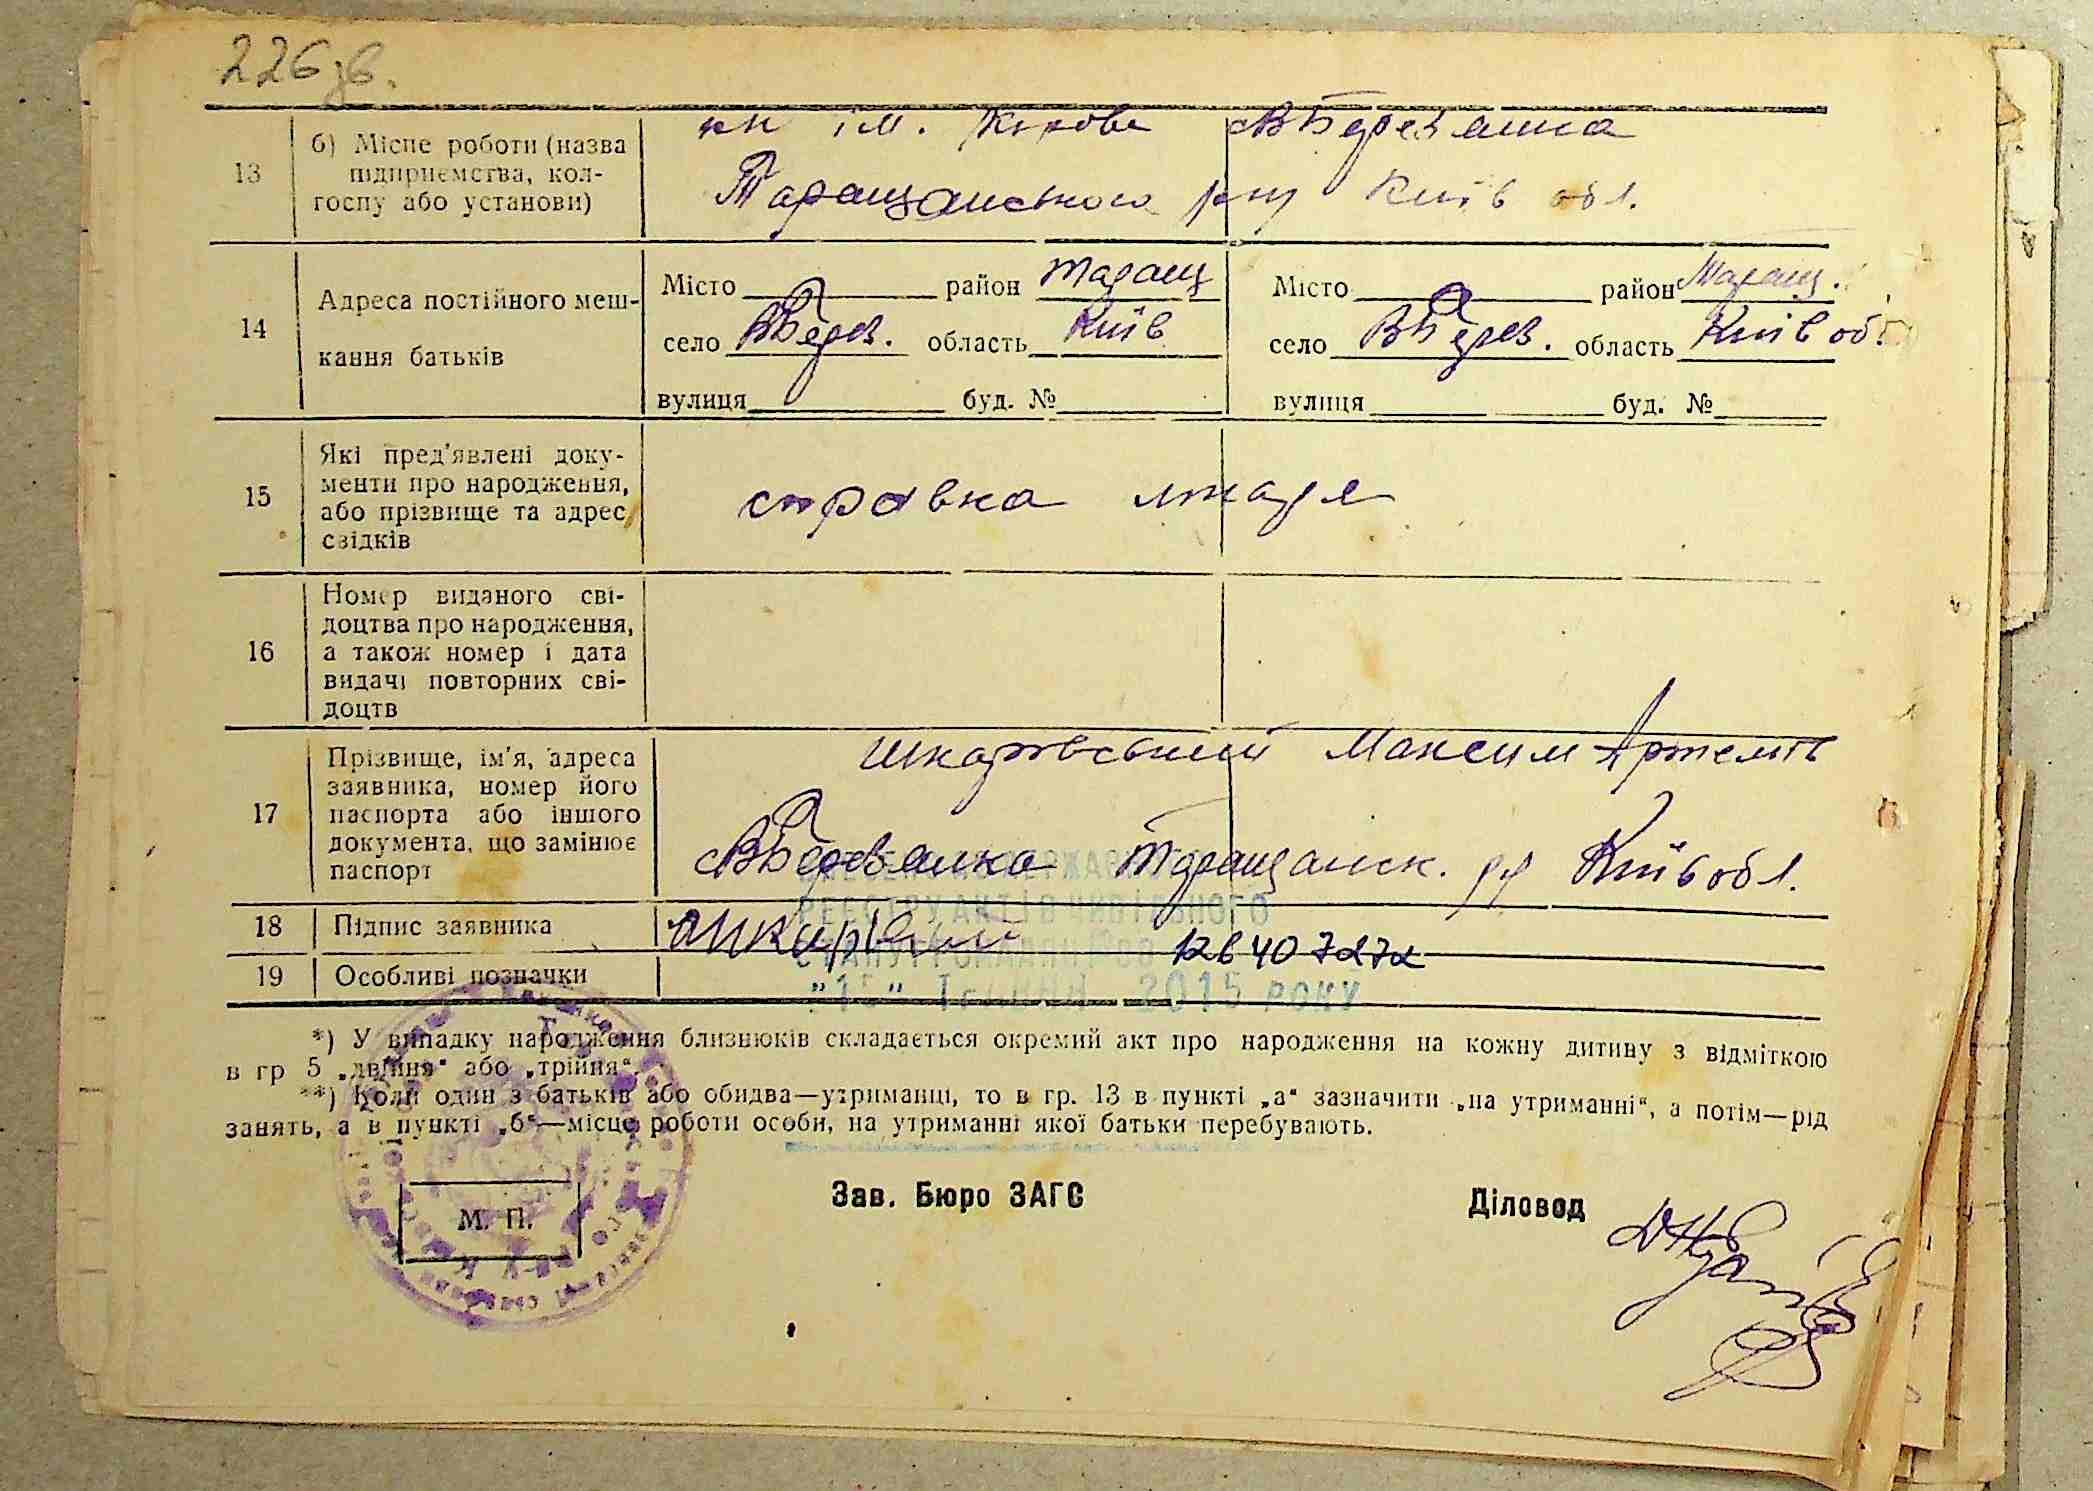 226 зв.
13
б) Місце роботи (назва
підприємства, кол-
госпу або установи)
кп ім. Кірова ВБерезанка
Таращанського р-ну Київ обл.
14
Адреса постійного меш-
кання батьків
Місто район Таращ
село ВБерез. область Київ
вулиця буд. №
Місто район Таращ.
село ВБерез. область Київ обл
вулиця буд. №
15
Які пред'явлені доку-
менти про народження,
або прізвище та адрес
свідків
справка
16
Номер виданого сві-
доцтва про народження,
а також номер і дата
видачі повторних сві-
доцтв
17
Прізвище, ім'я, адреса
заявника, номер його
паспорта або іншого
документа, що замінює
паспорт
Шкарівський Максим Артемів
ВБерезанка Таращанск. рн Київ обл.
18
Підпис заявника
19
Особливі позначки
РЕЄСТРУ АКТІВ ЦИВІЛЬНОГО
126407272
"15" Травня 2015 РОКУ
*) У випадку народження близнюків складається окремий акт про народження на кожну дитину з відміткою
в гр 5 „двійня“ або „трійня“.
**) Коли один з батьків або обидва—утриманці, то в гр. 13 в пункті „а“ зазначити „на утриманні“, а потім—рід
занять, а в пункті „б“—місце роботи особи, на утриманні якої батьки перебувають.
М. П.
Зав. Бюро ЗАГС
Діловод